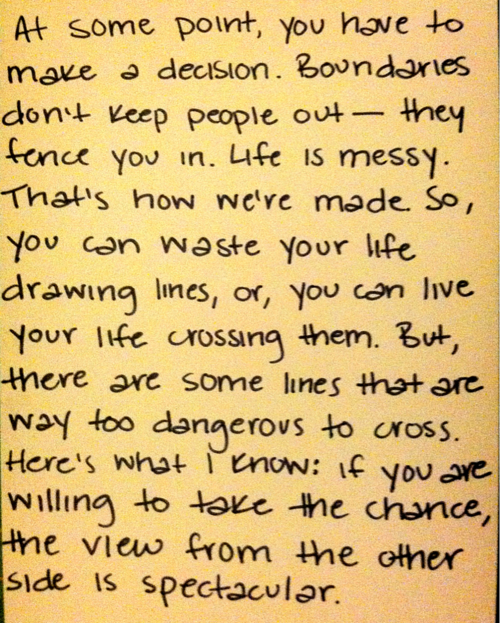 At some point, you have to
make a decision. Boundaries
don't keep people out — they
fence you in. Life is messy.
That's how we're made. So,
you can waste your life
drawing lines, or, you can live
your life crossing them. But,
there are some lines that are
way too dangerous to cross.
Here's what I know: if you are
willing to take the chance,
the view from the other
side is spectacular.